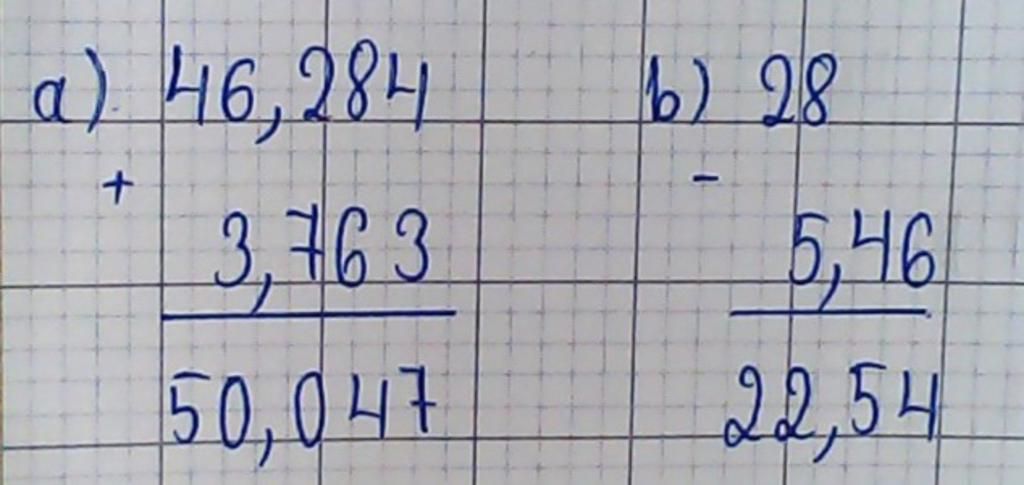 a) 46,284 b) 28
+ -
3,763 5,46
50,047 22,54